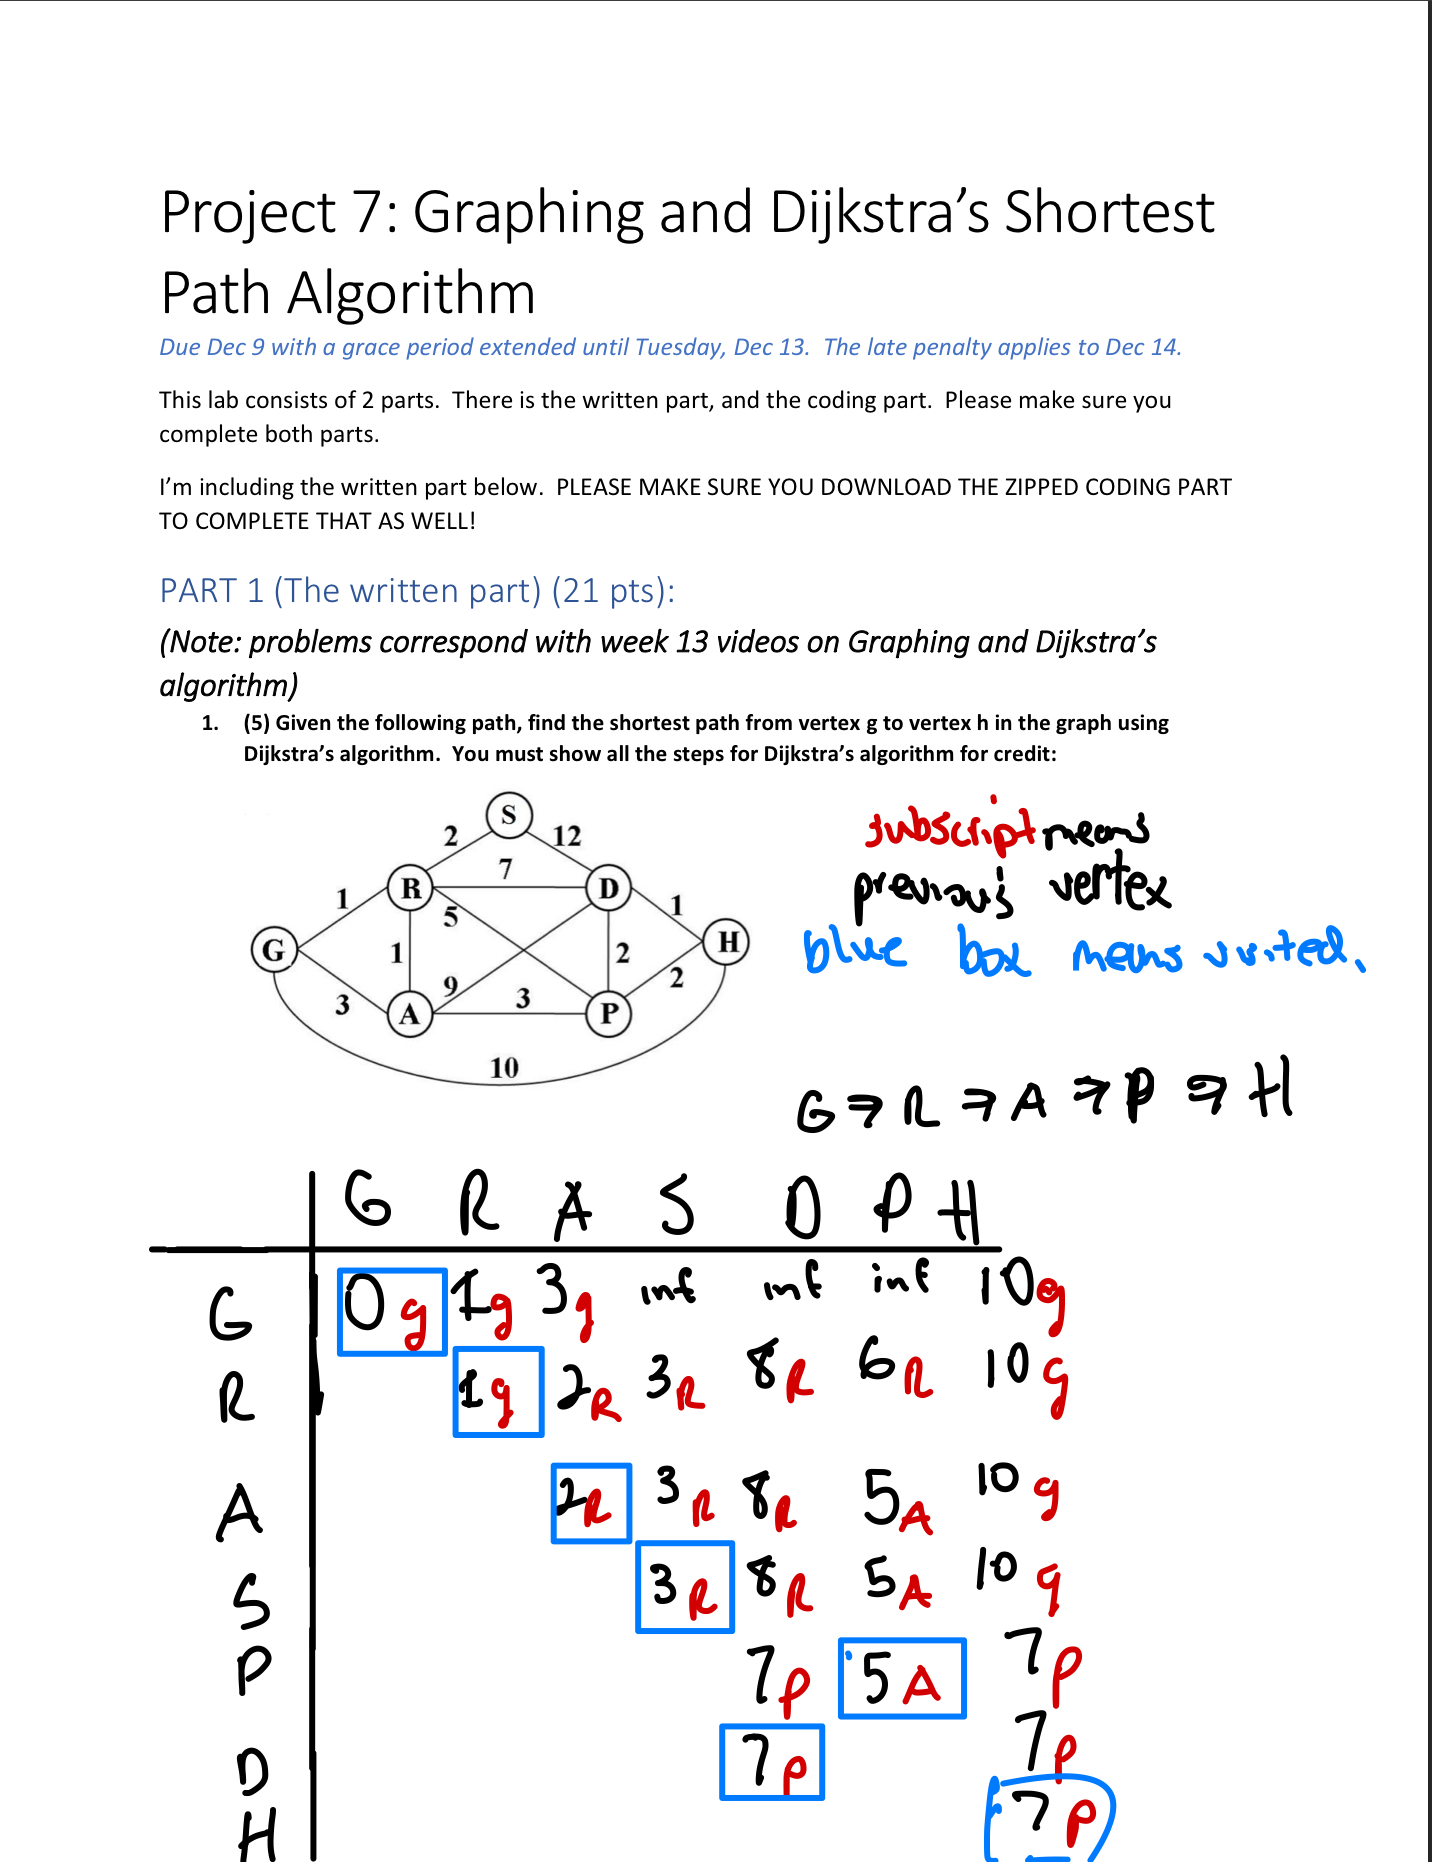 Project 7: Graphing and Dijkstra’s Shortest
Path Algorithm
Due Dec 9 with a grace period extended until Tuesday, Dec 13.  The late penalty applies to Dec 14.
This lab consists of 2 parts.  There is the written part, and the coding part.  Please make sure you
complete both parts.
I’m including the written part below.  PLEASE MAKE SURE YOU DOWNLOAD THE ZIPPED CODING PART
TO COMPLETE THAT AS WELL!
PART 1 (The written part) (21 pts):
(Note: problems correspond with week 13 videos on Graphing and Dijkstra’s
algorithm)
1. (5) Given the following path, find the shortest path from vertex g to vertex h in the graph using
Dijkstra’s algorithm.  You must show all the steps for Dijkstra’s algorithm for credit:
S
2 12
7
R D
1 5 1
G 1 2 H
9 3 2
3 A P
10
subscript means
previous vertex
blue box means visited.
G → R → A → P → H
G R A S D P H
G 0g 1g 3g inf inf inf 10g
R 1g 2R 3R 8R 6R 10g
A 2R 3R 8R 5A 10g
S 3R 8R 5A 10g
P 7p 5A 7p
D 7p 7p
H 7p